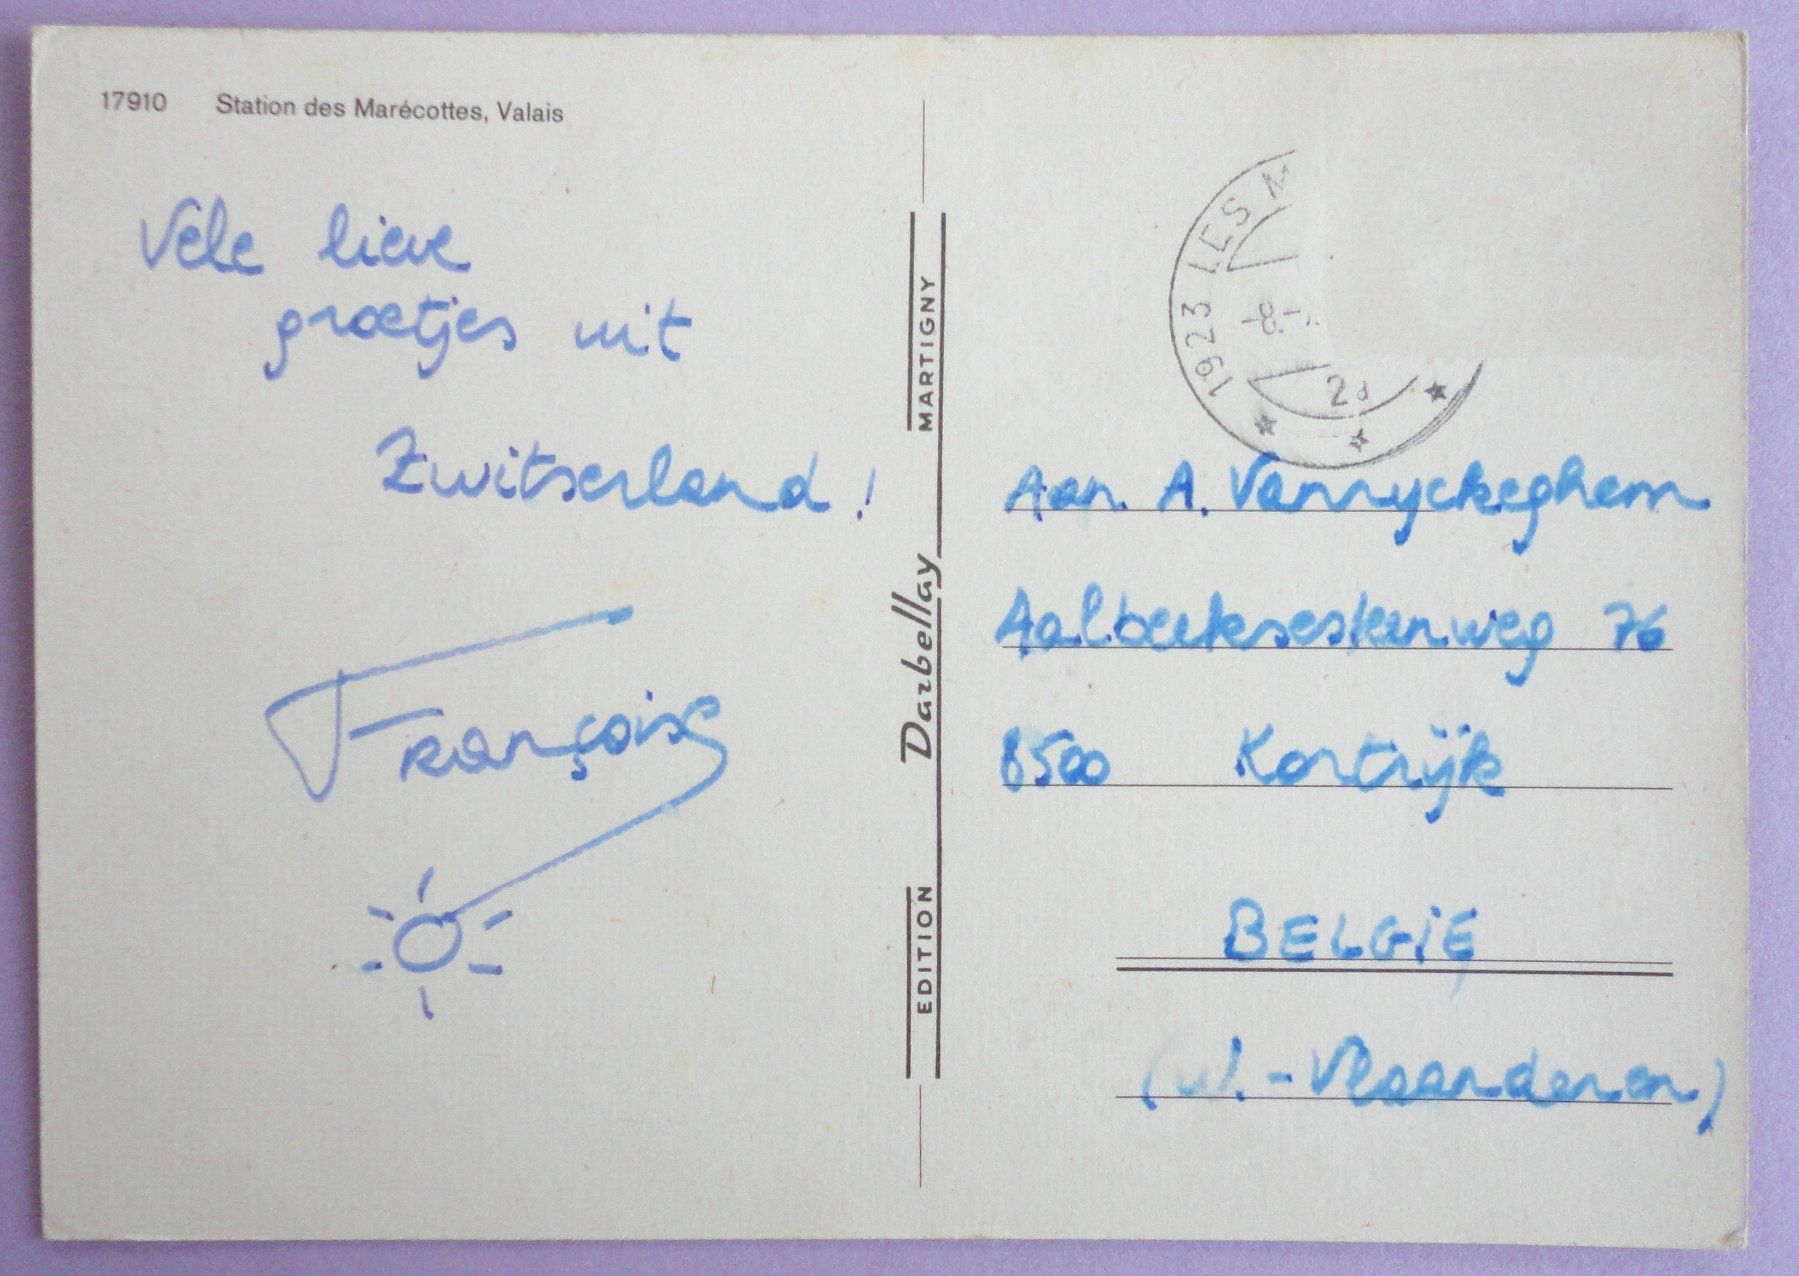 17910 Station des Marécottes, Valais
Vele lieve
groetjes uit
Zwitserland!
Françoise
EDITION Darbellay MARTIGNY
1923 LES
-8.-
Aan A. Vanryckeghem
Aalbeeksesteenweg 76
8500 Kortrijk
BELGIË
(W.-Vlaanderen)